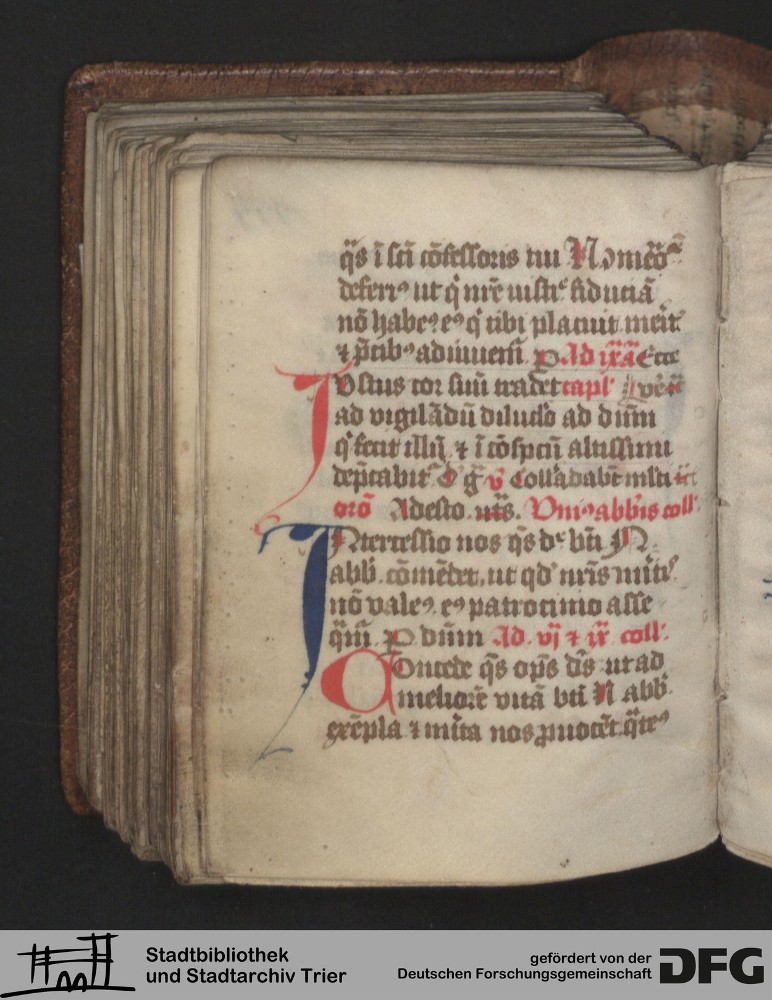 q̄s ī sc̄i cōfessoris tui N om̄ēoͣ
deferrꝰ ut q̄ nr̄e iustͤ fiduciā
nō habeꝰ eꝰ q̄ tibi placuit merit͛
⁊ p̄cibꝰ adiuuem̄. p Ad ix̄ā Ecce
Iustus cor suū tradet capl̓
ad vigilādū dilucl̓o ad dūm
q̓ fecit illū ⁊ ī cōspcū altissimi
dep̄cabit͛ v̄ Collādabēt m̄lti
orō Adesto. Vniꝰ abb̄is coll̓
Intercessio nos q̄s dͤ bt̄i N
abb̄. cōmēdet, ut qd̓ nr̄is mītͥs
nō valeꝰ, eꝰ patrocinio asse
q̄m̄. p dūm Ad vj ⁊ ix̄ coll̓
Concede q̄s op̄s d̄s ut ad
meliorē vitā bt̄i N abb̄.
exēpla ⁊ mīta nos ꝓuocēt q̄teꝰ
Stadtbibliothek
und Stadtarchiv Trier
gefördert von der
Deutschen Forschungsgemeinschaft
DFG